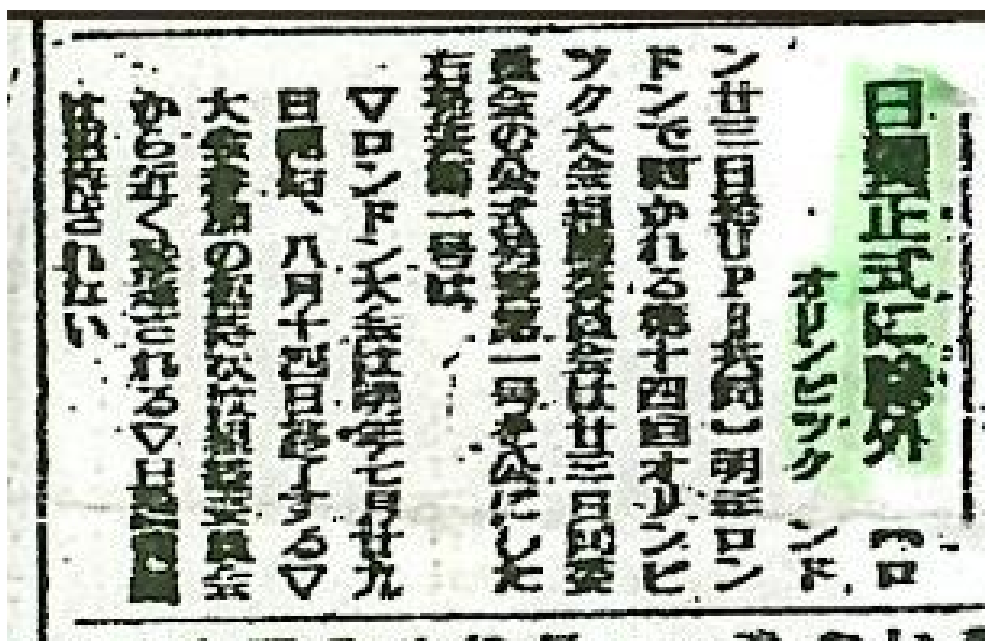 日獨正式に除外
オリンピツク
【ロ
ンド
ン廿三日発UP=共同】明年ロン
ドンで開かれる第十四回オリンピ
ツク大会組織委員会は廿三日同委
員会の公式発表第一号を公にした
右発表第一号は、
▽ロンドン大会は明年七月廿九
日開始、八月十四日終了する▽
大会参加の招待状は組織委員会
から近く発送される▽日独両国
は招待されない